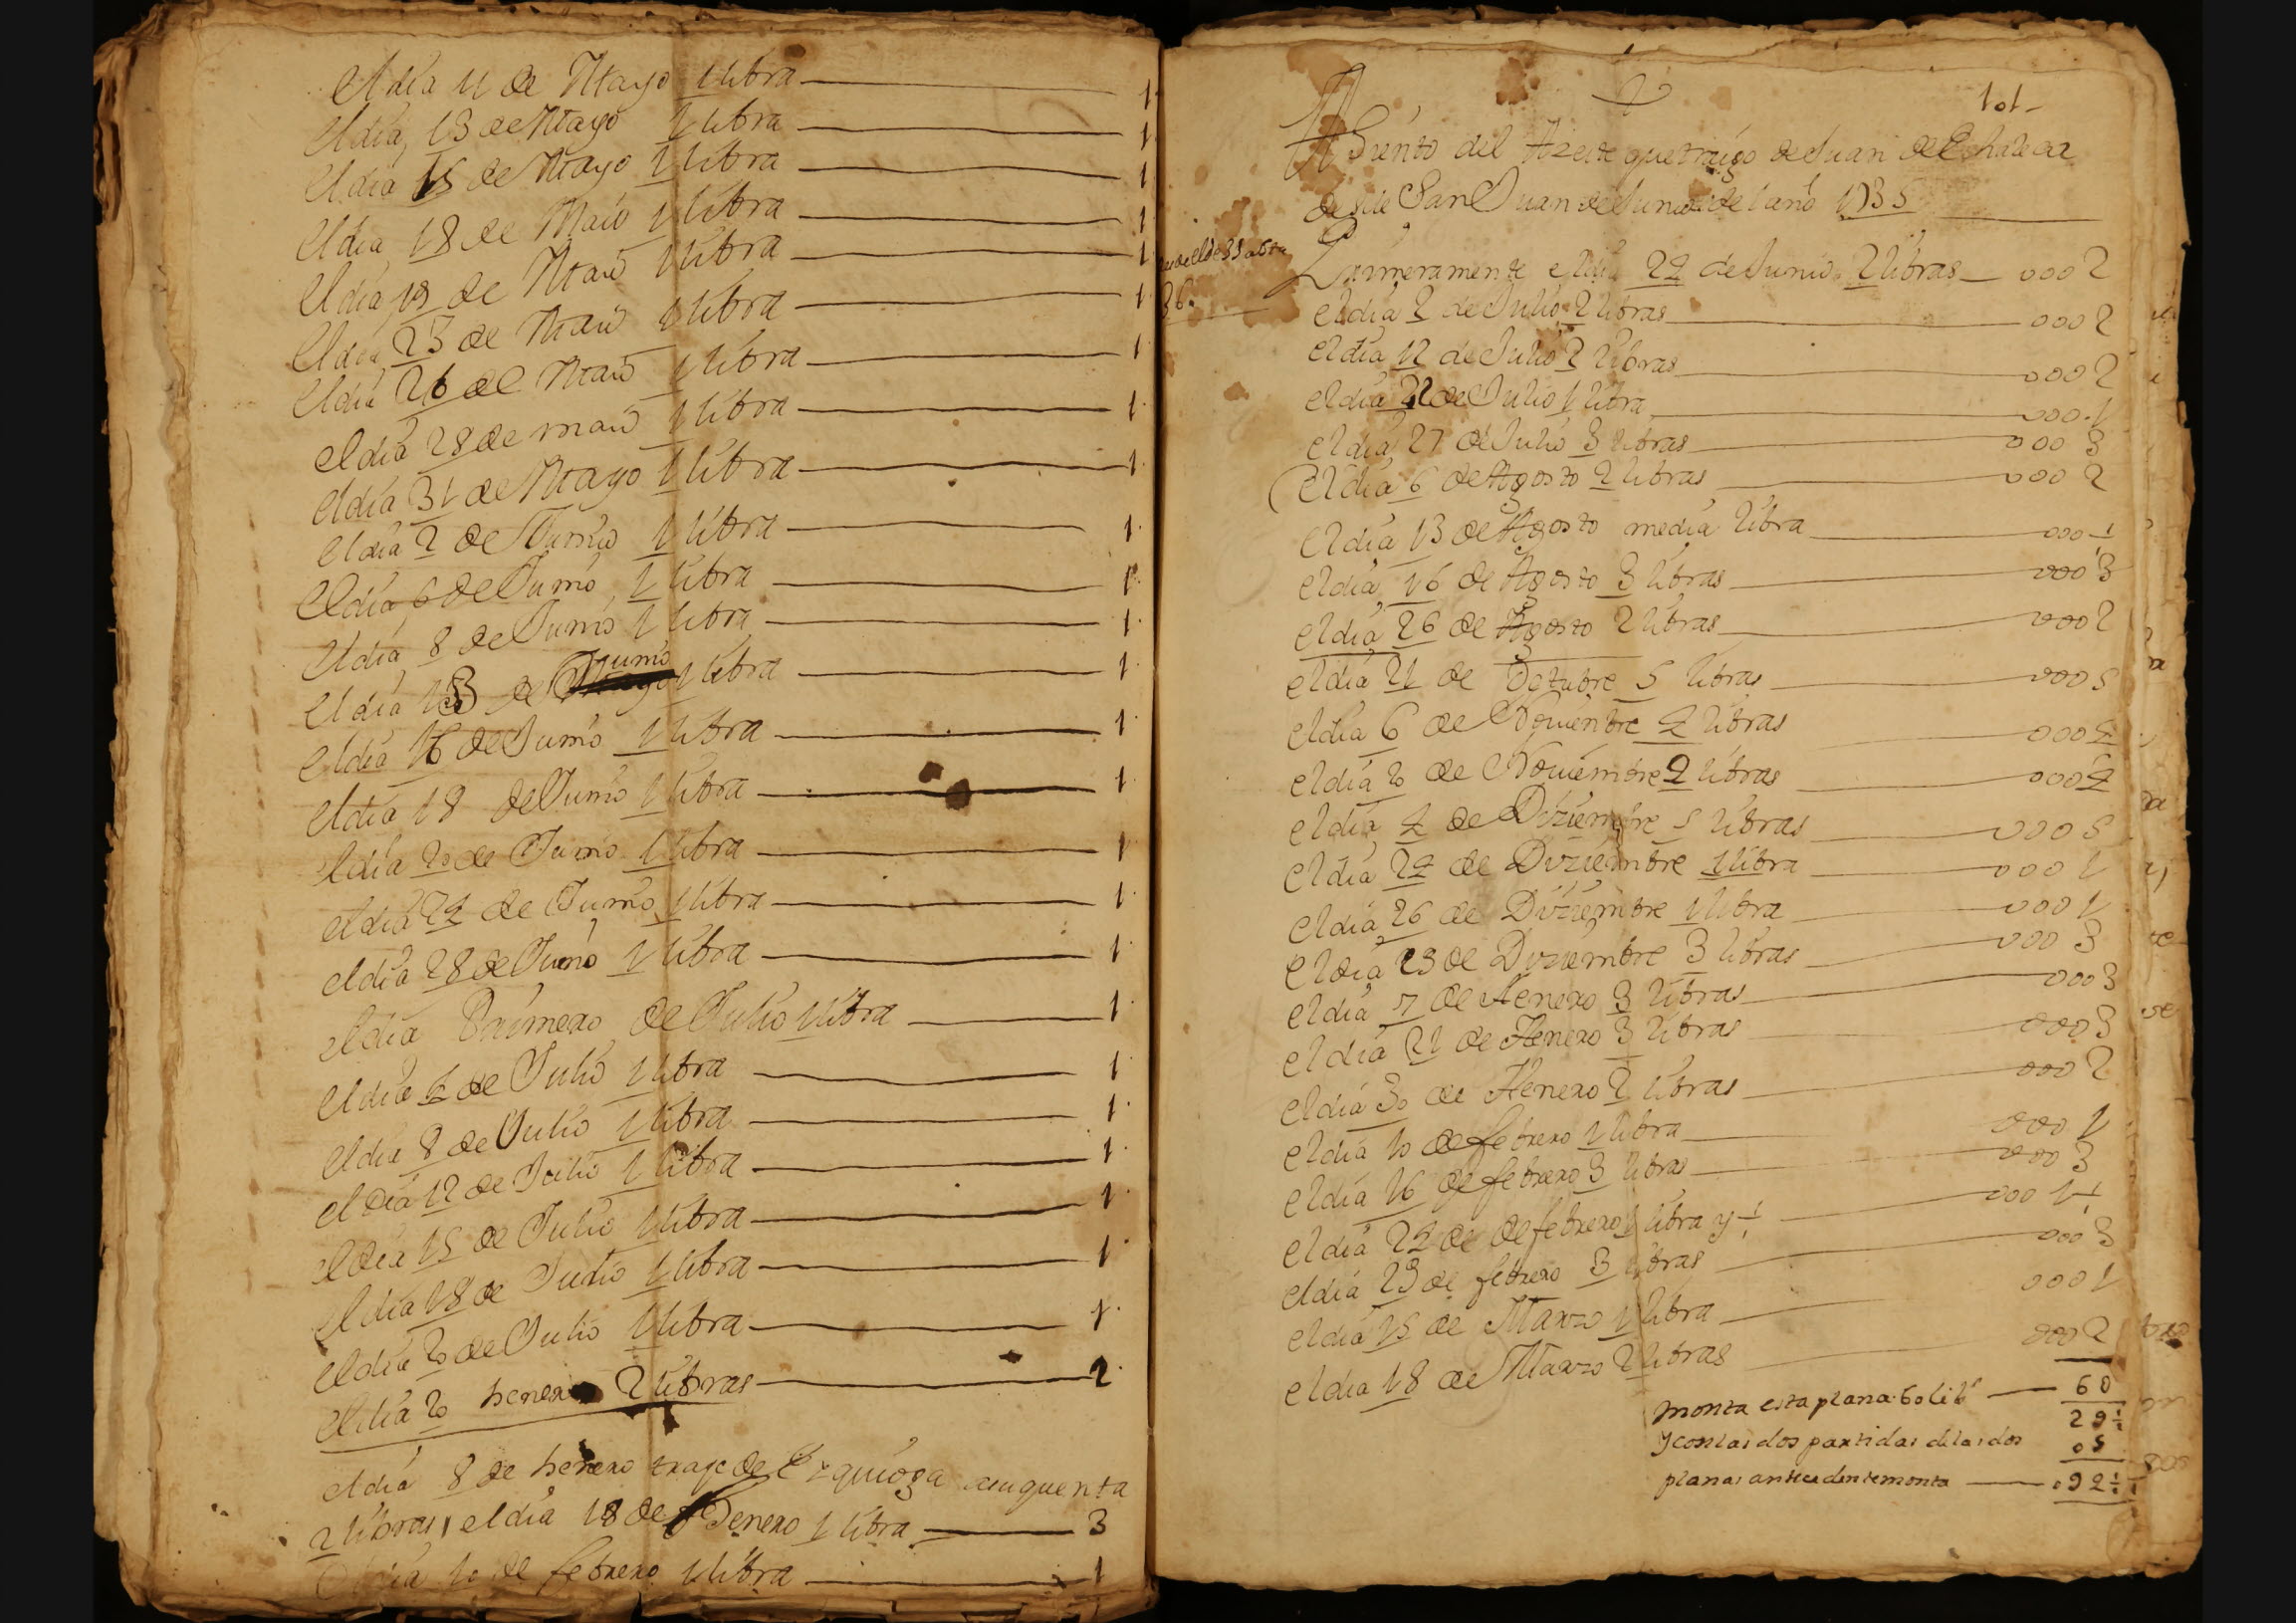 el día 11 de Mayo 1 libra 1
el día 13 de Mayo 1 libra 1
el día 15 de Mayo 1 libra 1
el día 18 de Maio 1 libra 1
el día 19 de Maio 1 libra 1
el día 23 de Maio 1 libra 1
el día 26 de Maio 1 libra 1
el día 28 de maio 1 libra 1
el día 31 de Mayo 1 libra 1
el día 2 de Junio 1 libra 1
el día 6 de Junio 1 libra 1
el día 8 de Junio 1 libra 1
el día 13 de Junio 1 libra 1
el día 16 de Junio 1 libra 1
el día 18 de Junio 1 libra 1
el día 20 de Junio 1 libra 1
el día 24 de Junio 1 libra 1
el día 28 de Junio 1 libra 1
el día Primero de Julio 1 libra 1
el día de Julio 1 libra 1
el día 8 de Julio 1 libra 1
el día 12 de Julio 1 libra 1
el día 15 de Julio 1 libra 1
el día 18 de Julio 1 libra 1
el día 20 de Julio 1 libra 1
el día 20 henero 2 libras 2
el día 8 de henero traje de Ezquioga
2 libras, el día 18 de Henero 1 libra 3
el día 10 de febrero 1 libra 1
101
ASiento del Azeite que traigo de Juan de
desde San Juan de Junio del año 1735
Primeramente el día 24 de Junio 2 libras 0002
el día 2 de Julio 2 libras 0002
el día 12 de Julio 2 libras 0002
el día 22 de Julio 1 libra 000.1
el día 27 de Julio 3 libras 000 3
el día 6 de Agosto 2 libras 000 2
el día 13 de Agosto media libra 000 ½
el día 16 de Agosto 3 libras 000 3
el día 26 de Agosto 2 libras 0002
el día 21 de Octubre 5 libras 0005
el día 6 de Nouienbre 4 libras 0004
el día 20 de Nouiembre 4 libras 0004
el día 4 de Diziembre 5 libras 0005
el día 24 de Diziembre 1 libra 0001
el día 26 de Diziembre 1 libra 0001
el día 29 de Diziembre 3 libras 000 3
el día 7 de Henero 3 libras 0003
el día 21 de Henero 3 libras 0003
el día 30 de Henero 2 libras 0002
el día 10 de febrero 1 libra 000 1
el día 16 de febrero 3 libras 000 3
el día 24 de febrero 1 libra y ½ 000 1½
el día 29 de febrero 3 libras 000 3
el día 15 de Marzo 1 libra 0001
el día 18 de Marzo 2 libras 0002
monta esta plana 60 lib 60
29½
y con las dos partidas de las dos 03
planas antecedente monta 92½